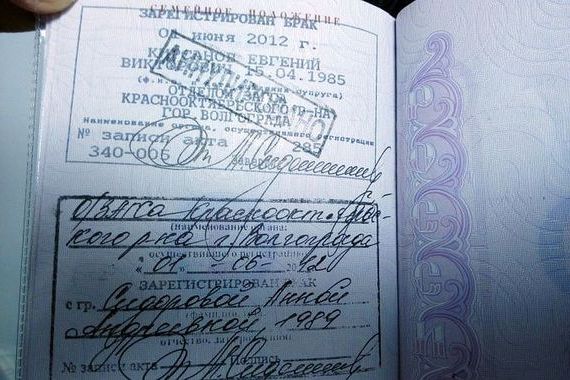 СЕМЕЙНОЕ ПОЛОЖЕНИЕ
ЗАРЕГИСТРИРОВАН БРАК
01 ИЮНЯ 2012 г.
ЕВГЕНИЙ
ВИКТОРОВИЧ 15.04.1985
ОТДЕЛОМ ЗАГСА
КРАСНООКТЯБРЬСКОГО Р-НА
ГОР. ВОЛГОГРАДА
Наименование органа, осуществившего регистрацию
№ записи акта 285
340-006 Заверил
АННУЛИРОВАНО
О/ЗАГСа Краснооктябрьс-
(наименование органа:
кого р-на г. Волгограда
осуществившего регистрацию)
«01» - 06 - 2012
ЗАРЕГИСТРИРОВАН БРАК
с гр. Сидоровой Анной
Андреевной, 1989
отчество, дата рожд.
№ записи акта Подпись